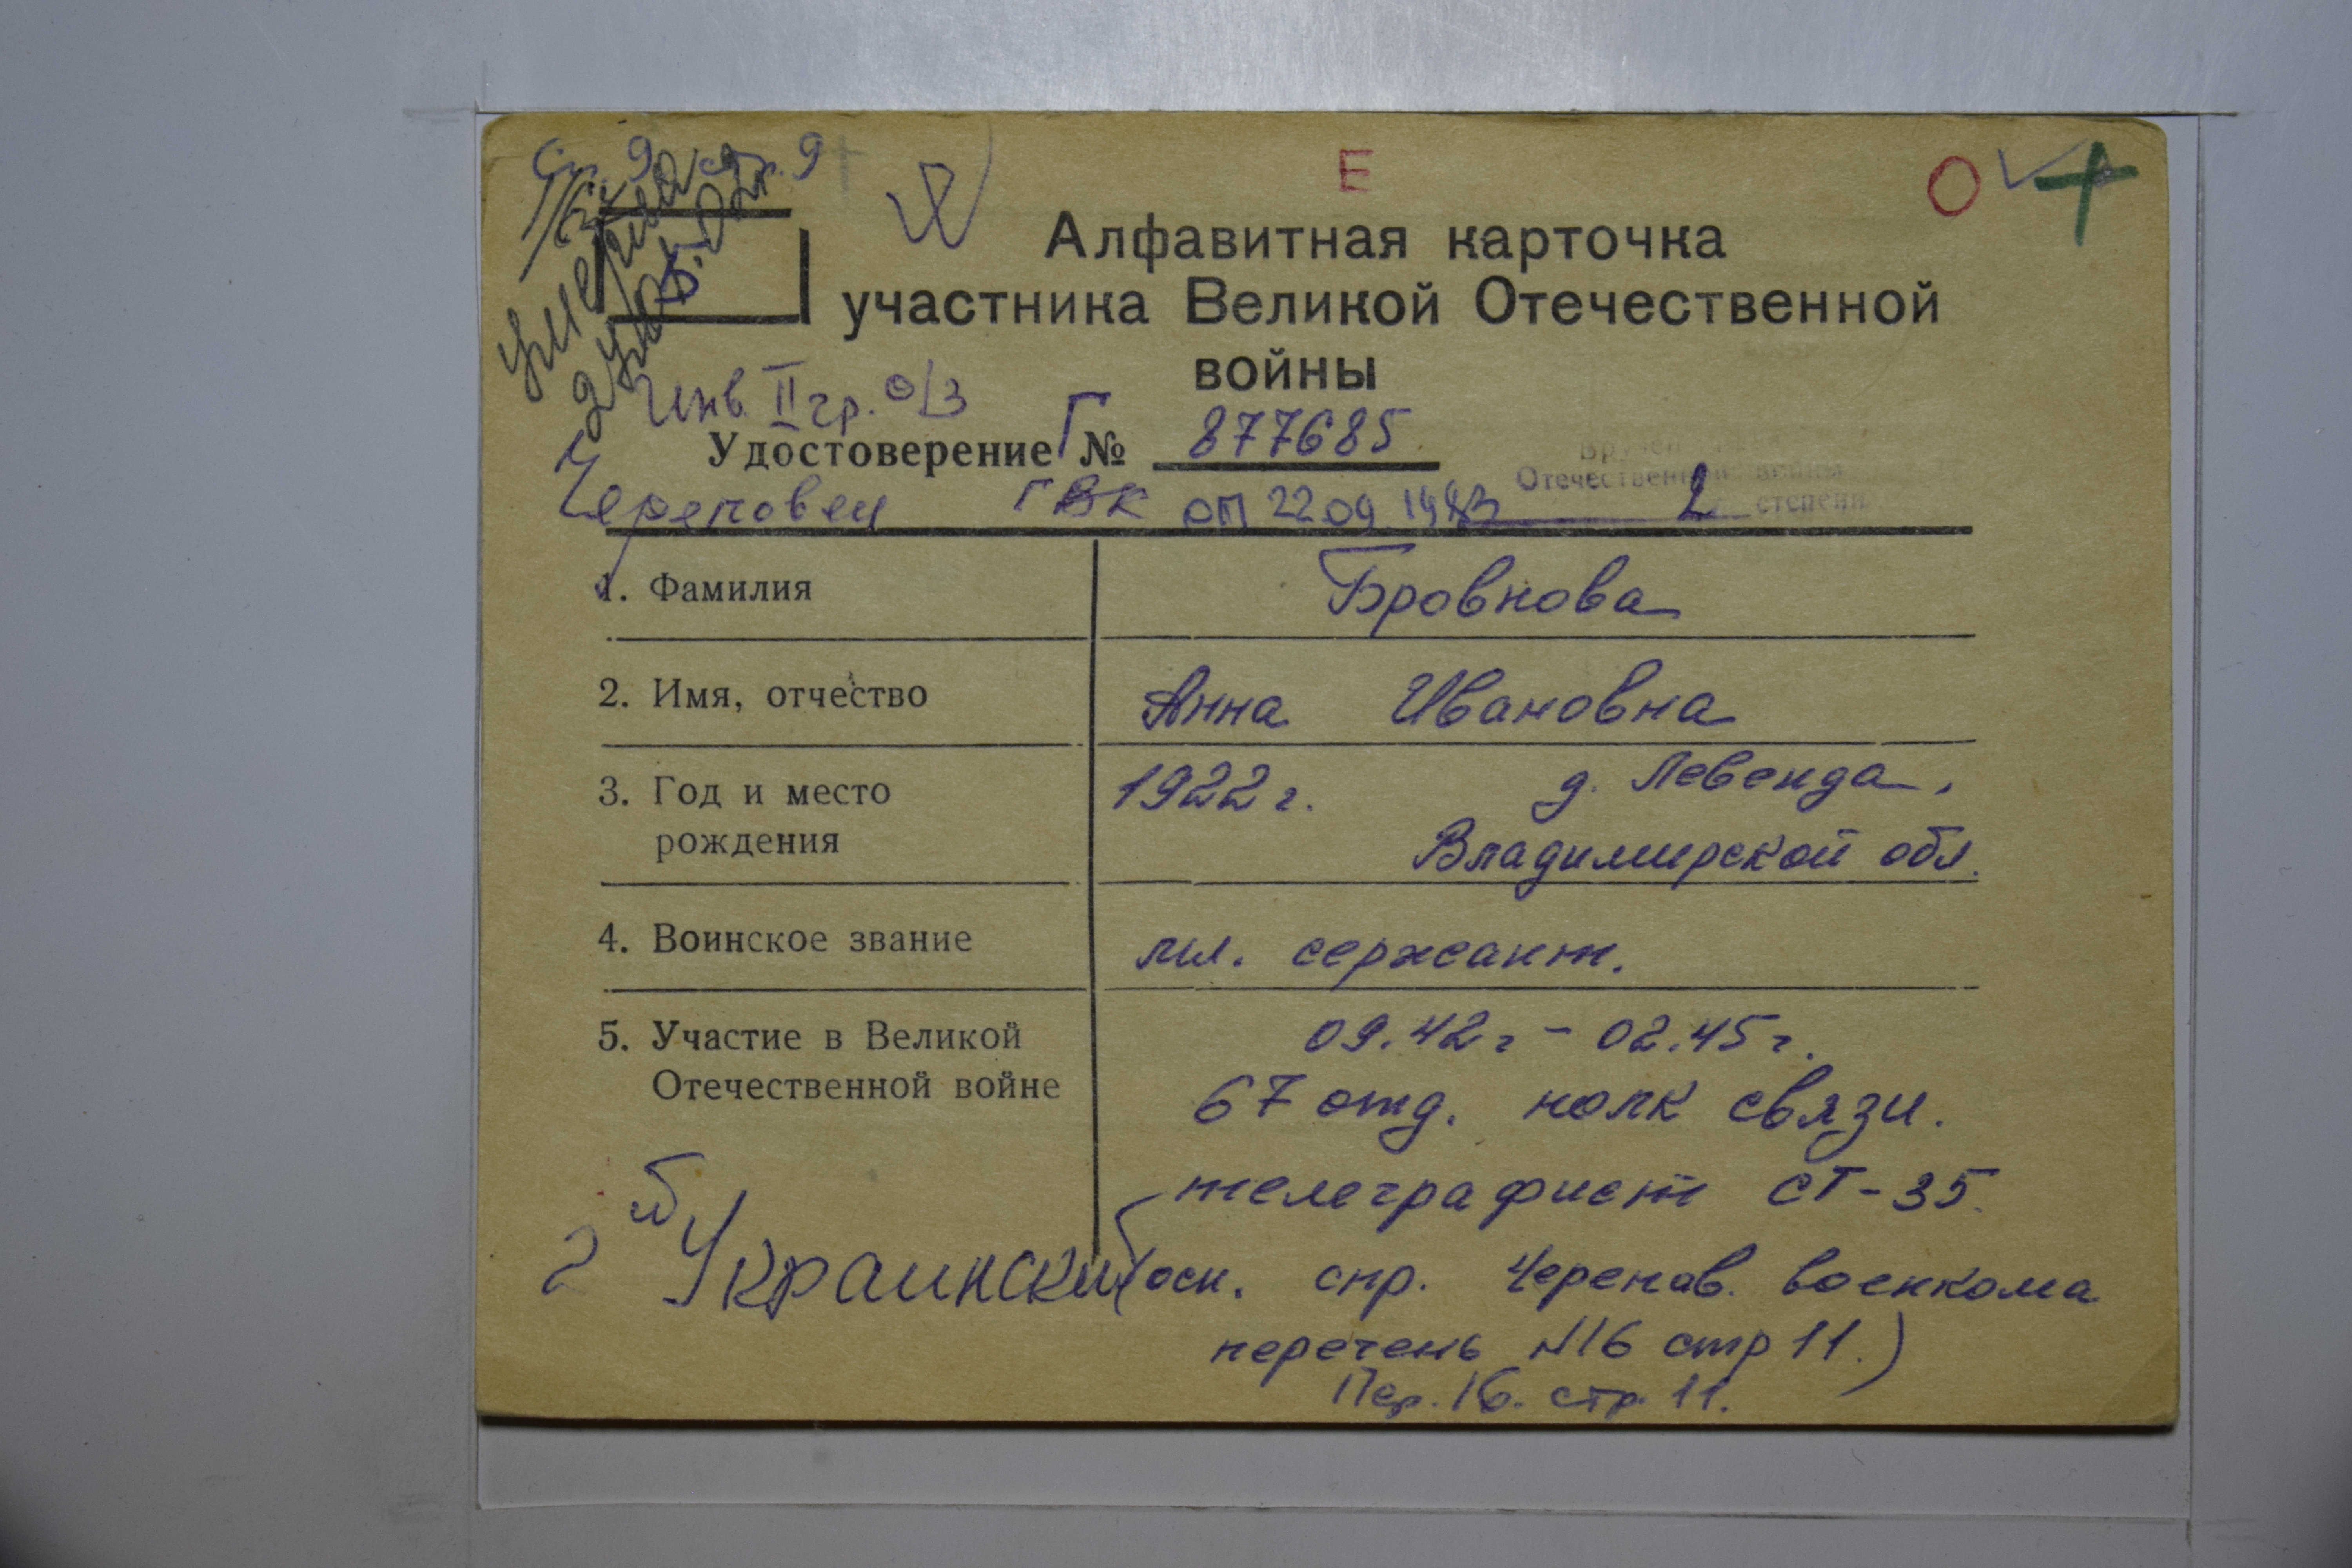 Е
О
Алфавитная карточка
участника Великой Отечественной
войны
умерла
Инв. II гр. о/з
Удостоверение Г № 877685
Вручен
Отечественной войны
2 степени
Череповец ГВК оп 22 09 1983
1. Фамилия
Бровнова
2. Имя, отчество
Анна Ивановна
3. Год и место
рождения
1922 г. д. Левенда,
Владимирской обл.
4. Воинское звание
мл. сержант.
5. Участие в Великой
Отечественной войне
09.42 г - 02.45 г.
67 отд. полк связи.
телеграфист СТ-35.
2 й Украинский
(осн. спр. Черепов. военкома
перечень №16 стр 11.)
Пер. 16. стр. 11.